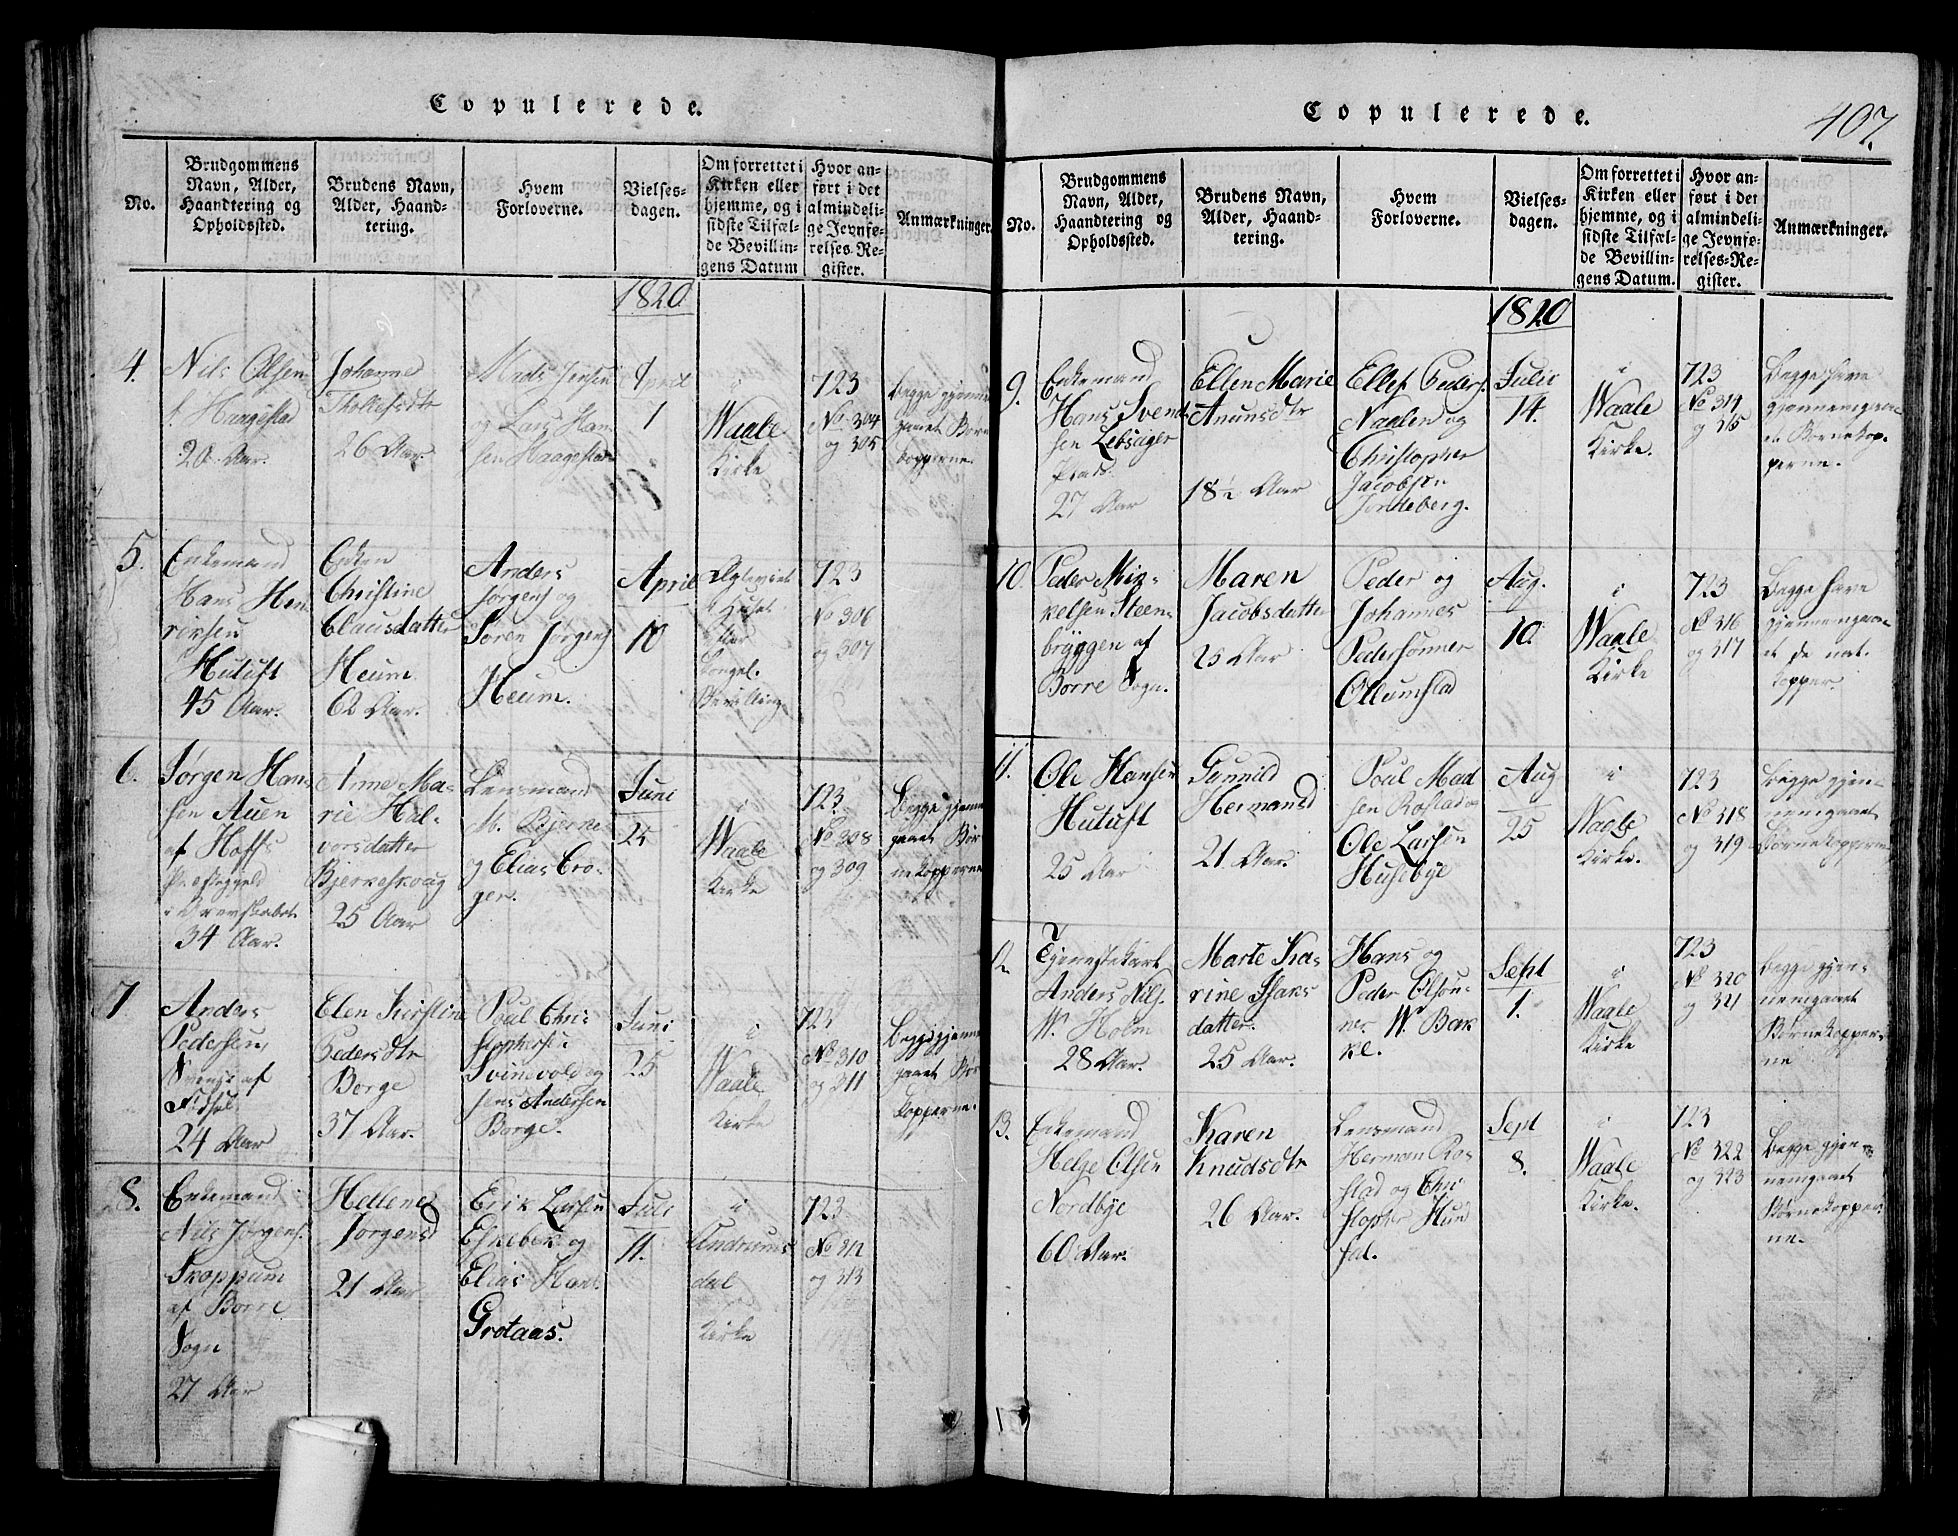 Copulerede.
No.
Brudgommens
Navn, Alder,
Haandtering og
Opholdssted.
Brudens Navn,
Alder, Haand-
tering.
Hvem
Forloverne.
Vielses-
dagen.
Om forrettet i
Kirken eller
hjemme, og i
sidste Tilfæl-
de Bevillin-
gens Datum
Hvor an-
ført i det
almindeli-
ge Jevnfø-
relses-Re-
gister.
Anmærkninger.
1820
4.
Nils Olsen
Haagestad
20 Aar.
Johanne
26 Aar.
Mads Jensen
og Lars Han
sen Haagestad
April
7
i
Waale
Kirke
723
No 304
og 305
Begge gjennem
gaaet Børne
kopperne.
5.
Enkemand
Hans Hen
riksen
Hutuft
45 Aar.
Enken
Christine
Clausdatter
Heum
62 Aar.
Anders
Jørgens og
Søren Jørgens
Heum.
April
10
i Huset
efter
kongel.
Bevilling
723
No 306
og 307
6.
Jørgen Han
sen Auen
af Hoffs
Præstegjeld
34 Aar.
Anne Ma-
rie Hal-
vorsdatter
Bjerkeskoug
25 Aar
Lensmand
M. Bjerke
og Elias Cro-
ger.
Juni
25
i
Waale
Kirke
723.
No 308
og 309
Begge gjennem
gaaet Bør
nekopperne
7
Anders
Pedersen,
af
24 Aar
Elen Kirstin
Pedersdtr
Borge
37 Aar.
Poul Chri
stophersen
Svinevold og
Jens Andersen
Borge.
Juni
25
i
Waale
Kirke
723
No 310
og 311
Begge gjennem
gaaet Bør
kopperne.
8.
Enkemand
Nils Jørgens.
Skoppum
af Borre
Sogn
27 Aar
Hellene
Jørgensd
21 Aar
Erik Larsen
Eskebek og
Elias Hans.
Grotaas.
Juli
11.
i
Undrums
dal
Kirke
723
No 312
og 313
Copulerede.
407.
No.
Brudgommens
Navn, Alder,
Haandtering og
Opholdssted.
Brudens Navn,
Alder, Haand-
tering.
Hvem
Forloverne.
Vielses-
dagen.
Om forrettet i
Kirken eller
hjemme, og i
sidste Tilfæl-
de Bevillin-
gens Datum.
Hvor an-
ført i det
almindeli-
ge Jevnfø-
relses-Re-
gister.
Anmærkninger.
1820
9.
Enkemand
Hans Svend
sen Lebsiger
27 Aar
Ellen Marie
Anunsdtr
18½ Aar
Ellef Peders.
Naalen og
Christopher
Jacobsen
Jordeberg.
Julii
14.
i
Waale
Kirke.
723
No 314
og 315
Begge have
gjennemgaa-
et Børnekop-
perne.
10.
Peder Mik-
kelsen Steen-
bryggen af
Borre Sogn.
Maren
Jacobsdatter
25 Aar
Peder og
Johannes
Pedersønner
Ollumstad
Aug.
10.
i
Waale
Kirke
723
No 316
og 317
Begge have
gjennemgaa-
et de nat.
kopper.
11.
Ole Hansen
Hutuft
25 Aar
Gunnild
Hermansd
21 Aar.
Poul Mad
sen Rostad og
Ole Larsen
Husebye
Aug
25
i
Waale
Kirke.
723
No 318
og 319
Begge gjen-
nemgaaet
Børnekopperne
12
Tjenestekarl
Anders Nils.
W. Holm
28 Aar.
Marte Ka-
rine Isaks
datter.
25 Aar.
Hans og
Peder Olsøn-
ner W. Bak
ke.
Sept
1.
i
Waale
Kirke
723
No 320
og 321
Begge gjen-
nemgaaet
Børnekopper-
ne
13.
Enkemand
Helge Olsen
Nordbye
60 Aar.
Karen
Knudsdtr
26 Aar.
Lensmand
Herman Ro-
stad og Chri
stopher Hund
sal.
Sept
8.
i
Waale
Kirke.
723
No 322
og 323
Begge gjen-
nemgaaet
Børnekopper
ne.